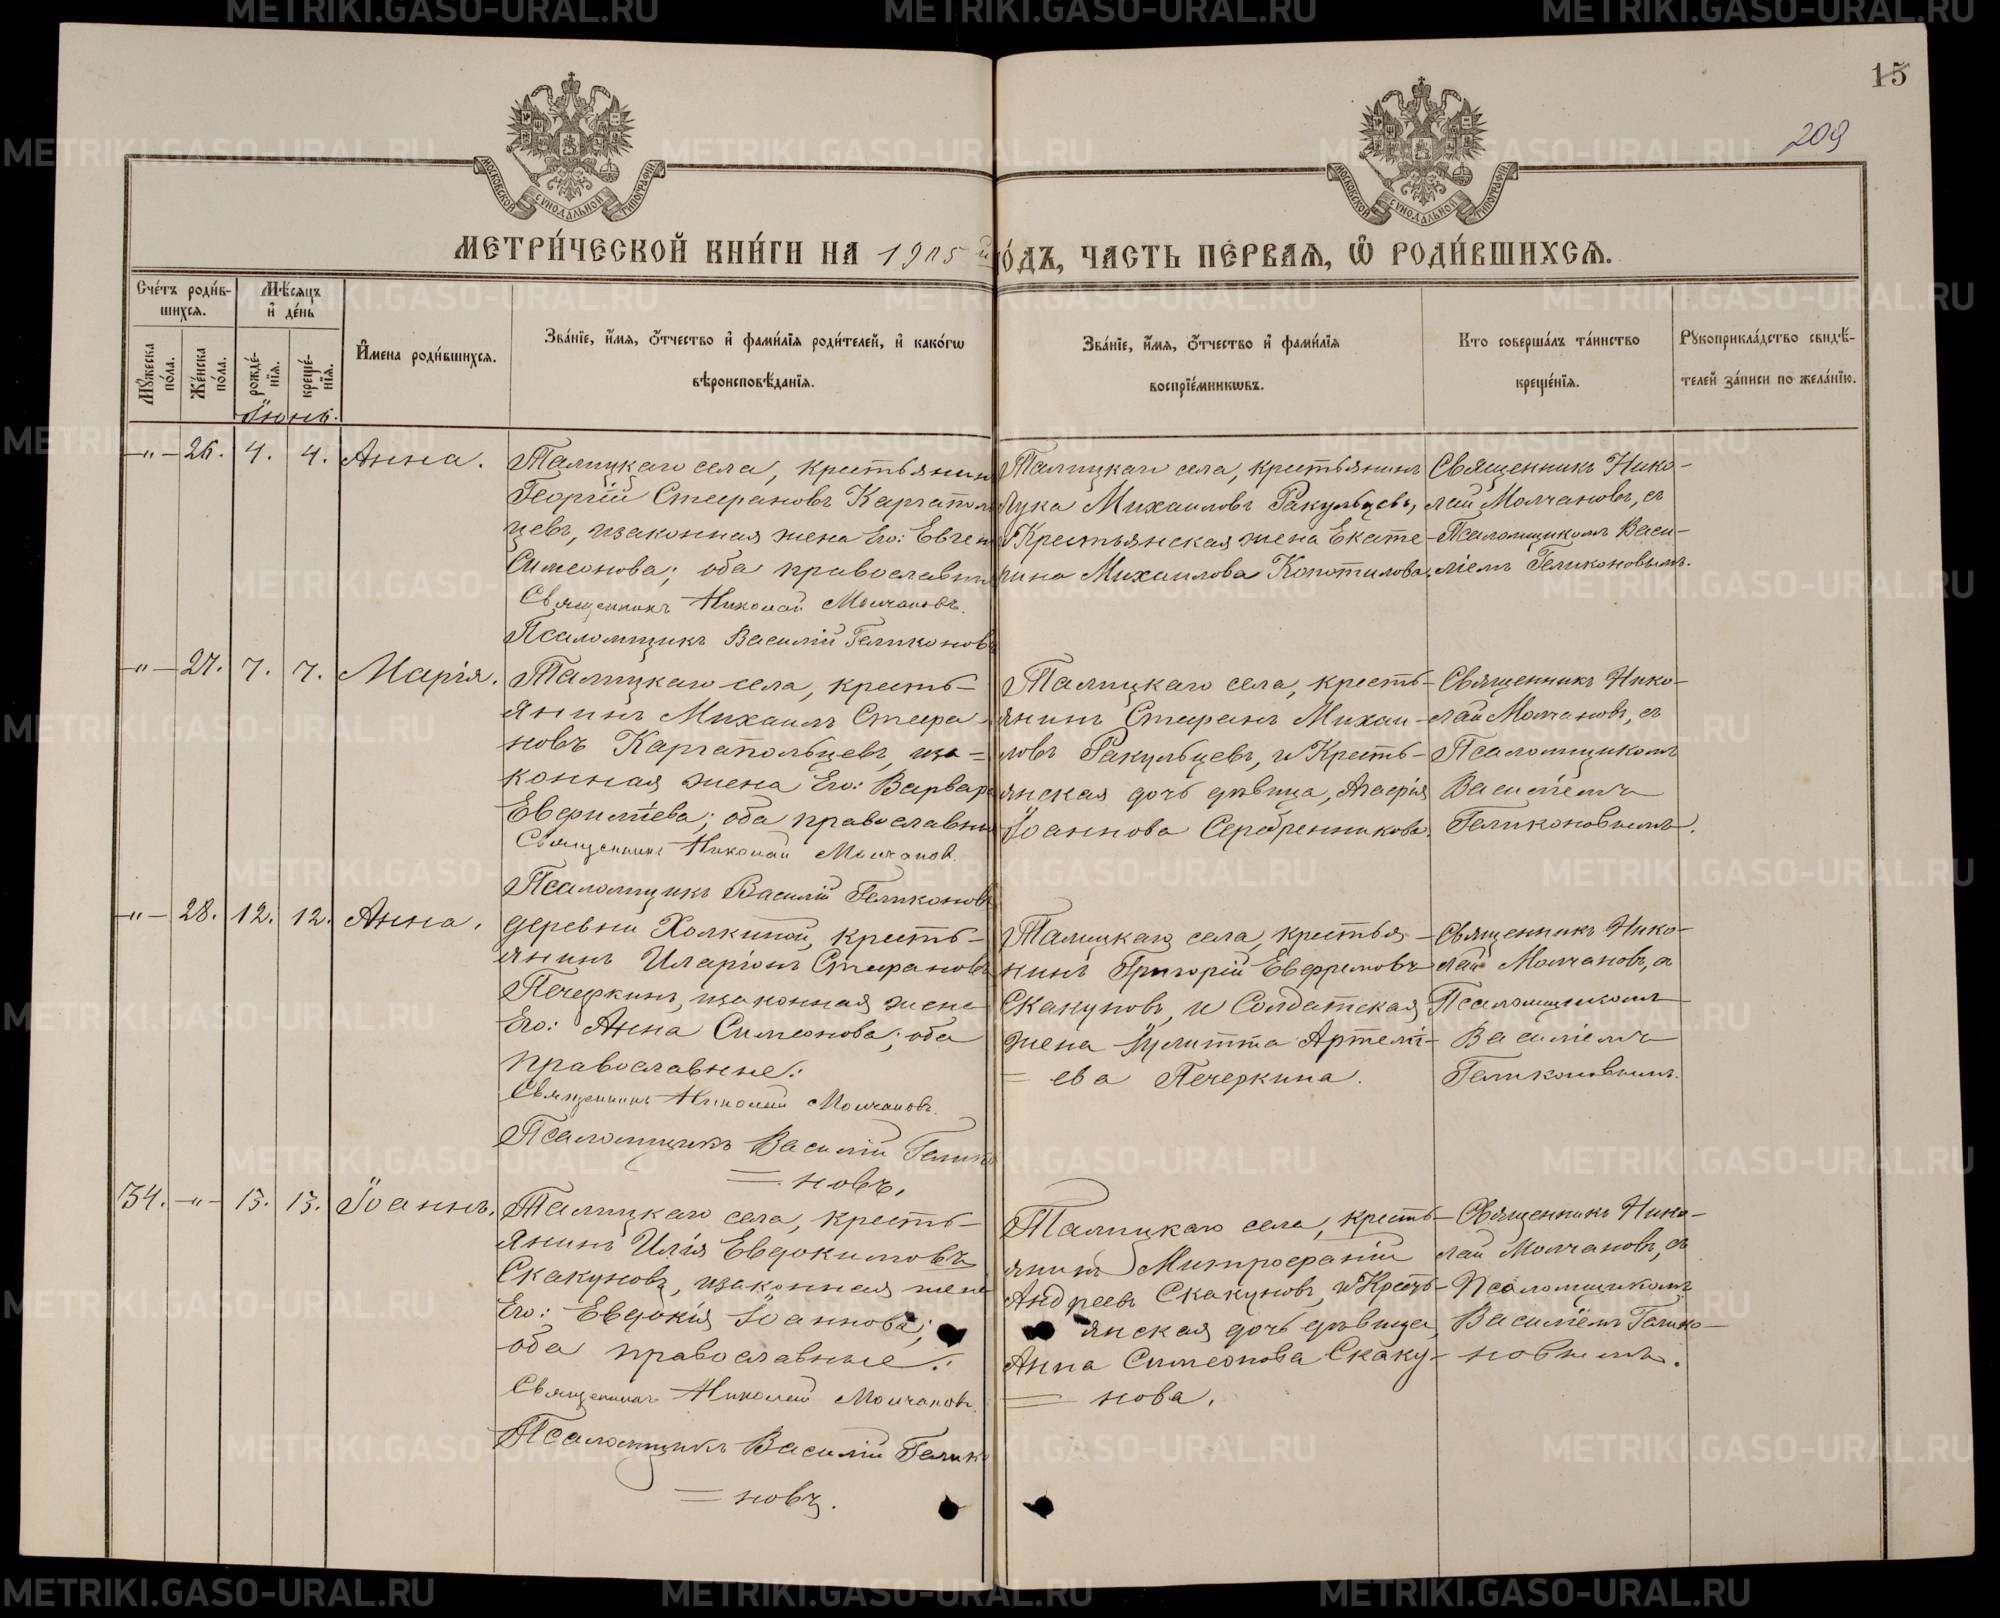 15
209
МОСКОВСКОЙ СѴНОДАЛЬНОЙ ТИПОГРАФІИ
МОСКОВСКОЙ СѴНОДАЛЬНОЙ ТИПОГРАФІИ
МЕТРИ́ЧЕСКОЙ КНИ́ГИ НА 1905 й
О́ДЪ, ЧАСТЬ ПЕ́РВАЯ, Ѡ҆ РОДИ́ВШИХСЯ.
Сче́тъ роди́в-
шихся.
Мѣ́сяцъ
и҆ де́нь
Мꙋ́жеска по́ла.
Же́нска по́ла.
рожде́-
нїя.
креще́-
нїя.
И҆́мена роди́вшихся.
Зва́нїе, и҆́мя, ѻ҆́тчество и҆ фами́лїя роди́телей, и҆ како́гѡ
вѣроисповѣ́данїя.
Зва́нїе, и҆́мя, ѻ҆́тчество и҆ фами́лїя
воспрїе́мникѡвъ.
Кто соверша́лъ та́инство
креще́нїя.
Рꙋкоприкла́дство свидѣ́-
телей за́писи по жела́нїю.
Іюнь.
—"— 26. 4. 4. Анна.
Талицкаго села, крестьянин
Георгій Стефановъ Каргаполь
цевъ, изаконная жена Его: Евген
Симеонова; оба православны
Священникъ Николай Молчановъ.
Псаломщикъ Василій Геликоновъ
Талицкаго села, крестьянинъ
Лука Михаиловъ Ракульцевъ,
и Крестьянская жена Екате-
рина Михаилова Копотилова.
Священникъ Нико-
лай Молчановъ, съ
Псаломщикомъ Васи-
ліемъ Геликоновымъ.
—"— 27. 7. 7. Марія.
Талицкаго села, кресть-
янинъ Михаилъ Стефа-
новъ Каргапольцевъ, иза=
конная жена Его: Варвар
Евфиміева; оба православны
Священникъ Николай Молчановъ.
Псаломщикъ Василій Геликоновъ
Талицкаго села, кресть-
янинъ Стефанъ Михаи-
ловъ Ракульцевъ, и Кресть-
янская дочь дѣвица, Агафія
Іоаннова Серебренникова.
Священникъ Нико-
лай Молчановъ, съ
Псаломщикомъ
Василіемъ
Геликоновымъ.
—"— 28. 12. 12. Анна.
деревни Холкиной, кресть-
янинъ Иларіонъ Стефановъ
Печеркинъ, изаконная жена
Его: Анна Симеонова; оба
православные.:
Священникъ Николай Молчановъ.
Псаломщикъ Василій Гелико
= новъ.
Талицкаго села, крестья-
нинъ Григорій Евфремовъ
Скакуновъ, и Солдатская
жена Іулитта Артемі-
= ева Печеркина.
Священникъ Нико-
лай Молчановъ, съ
Псаломщикомъ
Василіемъ
Геликоновымъ.
34. —"— 13. 13. Іоаннъ.
Талицкаго села, кресть-
янинъ Илія Евдокимовъ
Скакуновъ, изаконная жена
Его: Евдокія Іоаннова;
оба православные.:
Священникъ Николай Молчановъ.
Псаломщикъ Василій Гелико
= новъ.
Талицкаго села, кресть-
янинъ Митрофаній
Андреевъ Скакуновъ, и Кресть-
янская дочь дѣвица,
Анна Симеонова Скаку-
= нова.
Священникъ Нико-
лай Молчановъ, съ
Псаломщикомъ
Василіемъ Гелико-
новымъ.
METRIKI.GASO-URAL.RU